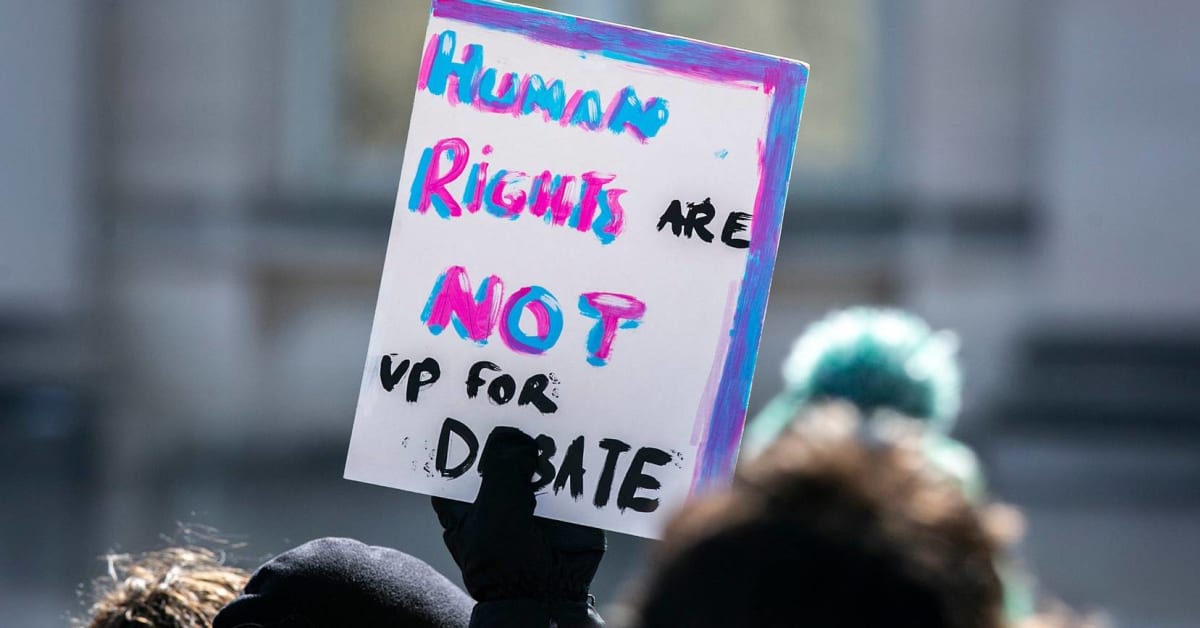 HUMAN
RIGHTS ARE
NOT
UP FOR
DEBATE